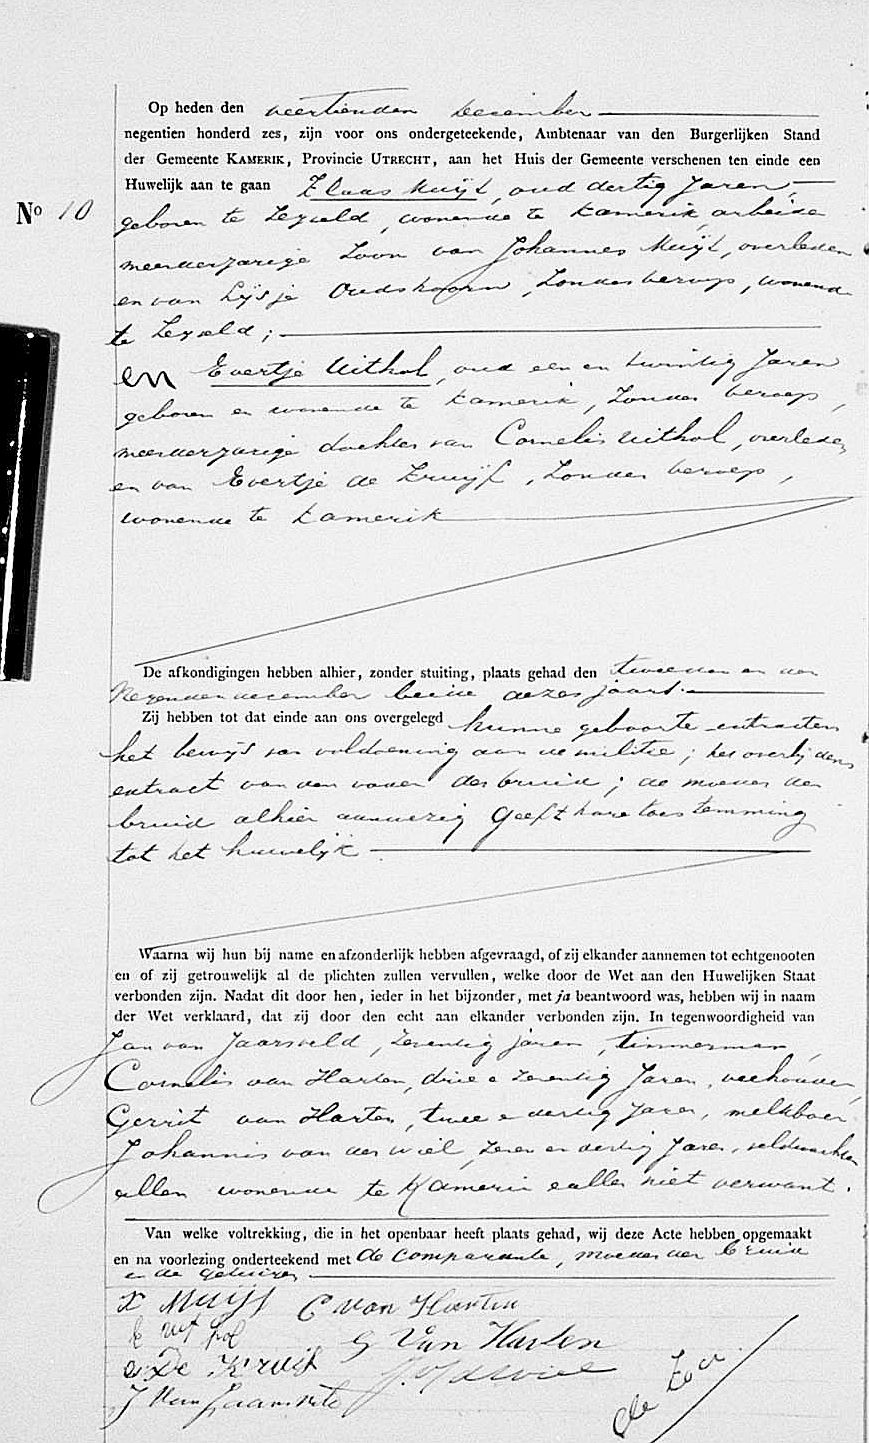 Op heden den veertienden December
negentien honderd zes, zijn voor ons ondergeteekende, Ambtenaar van den Burgerlijken Stand
der Gemeente KAMERIK, Provincie UTRECHT, aan het Huis der Gemeente verschenen ten einde een
Huwelijk aan te gaan Klaas Muijt, oud dertig Jaren,
No 10
geboren te Zegveld, wonende te Kamerik, arbeider
meerderjarige Zoon van Johannes Muijt, overleden
en van Lijsje Oudshoorn, Zonder beroep, wonende
te Zegveld;
en Evertje Uithol, oud een en twintig Jaren
geboren en wonende te Kamerik, Zonder beroep,
meerderjarige dochter van Cornelis Uithol, overleden
en van Evertje de Kruijf, Zonder beroep,
wonende te Kamerik
De afkondigingen hebben alhier, zonder stuiting, plaats gehad den tweeden en den
Negenden december beide dezes jaars.
Zij hebben tot dat einde aan ons overgelegd hunne geboorte extracten
het bewijs van voldoening aan de militie; het overlijdens
extract van den vader der bruid; de moeder der
bruid alhier aanwezig geeft hare toestemming
tot het huwelijk
Waarna wij hun bij name en afzonderlijk hebben afgevraagd, of zij elkander aannemen tot echtgenooten
en of zij getrouwelijk al de plichten zullen vervullen, welke door de Wet aan den Huwelijken Staat
verbonden zijn. Nadat dit door hen, ieder in het bijzonder, met ja beantwoord was, hebben wij in naam
der Wet verklaard, dat zij door den echt aan elkander verbonden zijn. In tegenwoordigheid van
Jan van Jaarsveld, Zeventig jaren, timmerman,
Cornelis van Harten, drie e Zeventig Jaren, veehouder,
Gerrit van Harten, twee e dertig Jaren, melkboer
Johannis van der Wiel, Zeven en dertig Jaren, veldwachter
allen wonende te Kamerik e allen niet verwant.
Van welke voltrekking, die in het openbaar heeft plaats gehad, wij deze Acte hebben opgemaakt
en na voorlezing onderteekend met de comparanten, moeder der bruid
en de getuigen
K Muijt C van Harten
E uit hol G Van Harten
e De Kruif J. v d Wiel
J Van Jaarsveld